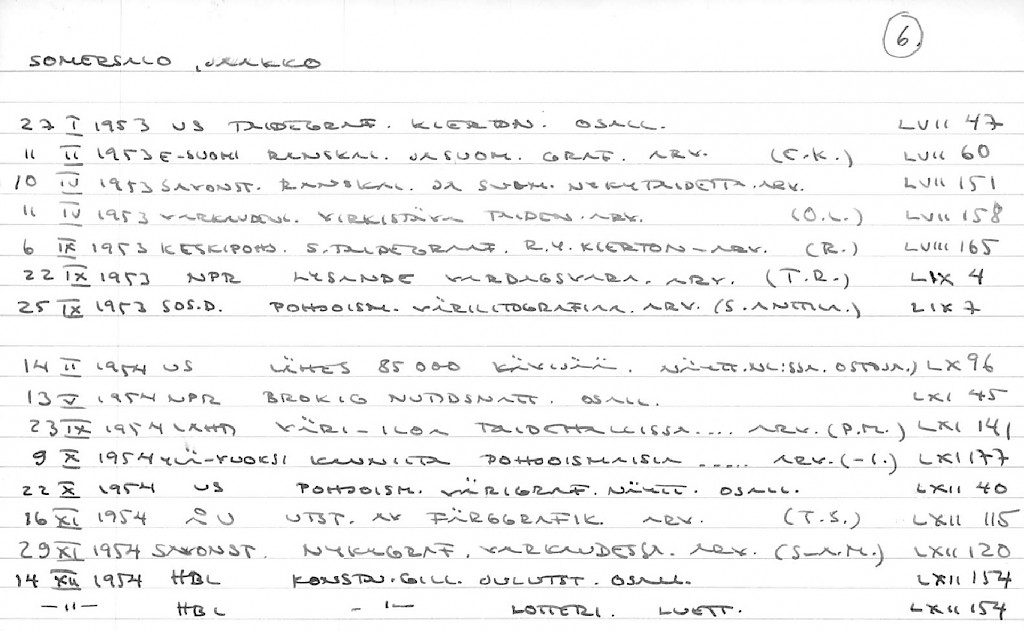 6.
SOMERSALO, JAAKKO
27 I 1953 US TAIDEGRAF. KIERTON. OSALL. LVII 47
11 II 1953 E-SUOMI RANSKAL. JA SUOM. GRAF. ARV. (E.K.) LVII 60
10 IV 1953 SAVONST. RANSKAL. JA SUOM. NYKYTAIDETTA. ARV. LVII 151
11 IV 1953 VARKAUDENL. VIRKISTÄVÄ TAIDEN. ARV. (O.L.) LVII 158
6 IX 1953 KESKIPOHJ. S. TAIDEGRAAF. R.Y. KIERTON-ARV. (R.) LVIII 165
22 IX 1953 NPR LYSANDE VARDAGSVARA. ARV. (T.R.) LIX 4
25 IX 1953 SOS.D. POHJOISM. VÄRILITOGRAFIAA. ARV. (S. ANTTILA.) LIX 7
14 II 1954 US LÄHES 85 000 KÄVIJÄÄ. NÄYTT.NL:SSA. OSTOJA.) LX 96
13 V 1954 NPR BROKIG NUTIDSNATT. OSALL. LXI 45
23 IX 1954 LAHTI VÄRI-ILOA TAIDEHALLISSA.... ARV. (P.M.) LXI 141
9 X 1954 YLÄ-VUOKSI KAUNIITA POHJOISMAISIA ..... ARV. (-I.) LXI 177
22 X 1954 US POHJOISM. VÄRIGRAF. NÄYTT. OSALL. LXII 40
16 XI 1954 ÅU UTST. AV FÄRGGRAFIK. ARV. (T.S.) LXII 115
29 XI 1954 SAVONST. NYKYGRAF. VARKAUDESSA. ARV. (S-A.M.) LXII 120
14 XII 1954 HBL KONSTN.GILL. JULUTST. OSALL. LXII 154
–"– HBL –"– LOTTERI. LUETT. LXII 154